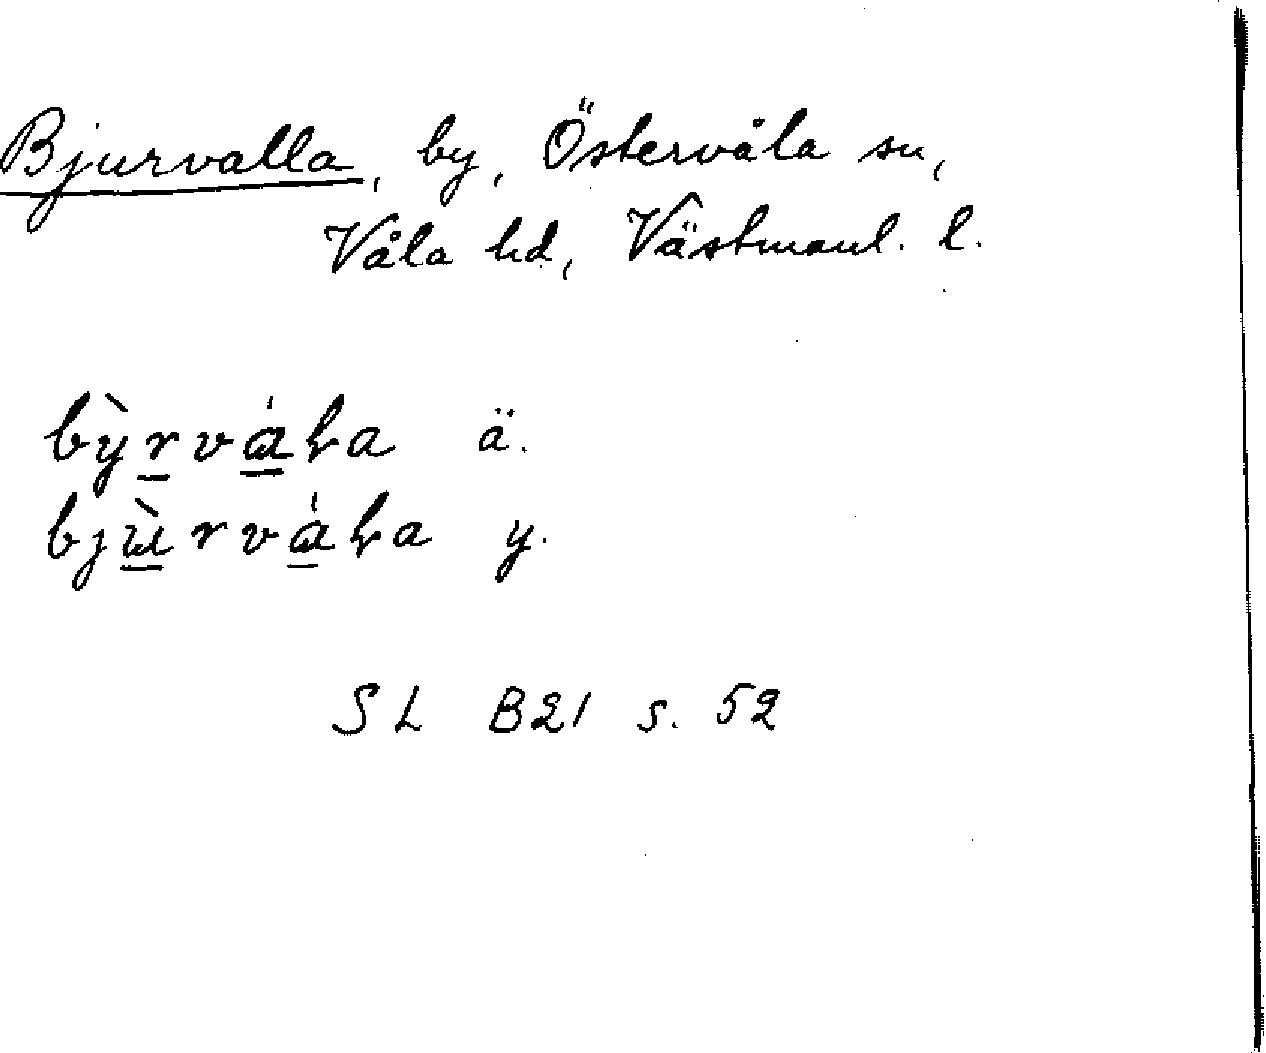 Bjurvalla, by, Östervåla sn,
Våla hd, Västmanl. l.
bỳrváɫa ä.
bjùrváɫa y.
SL B21 s. 52